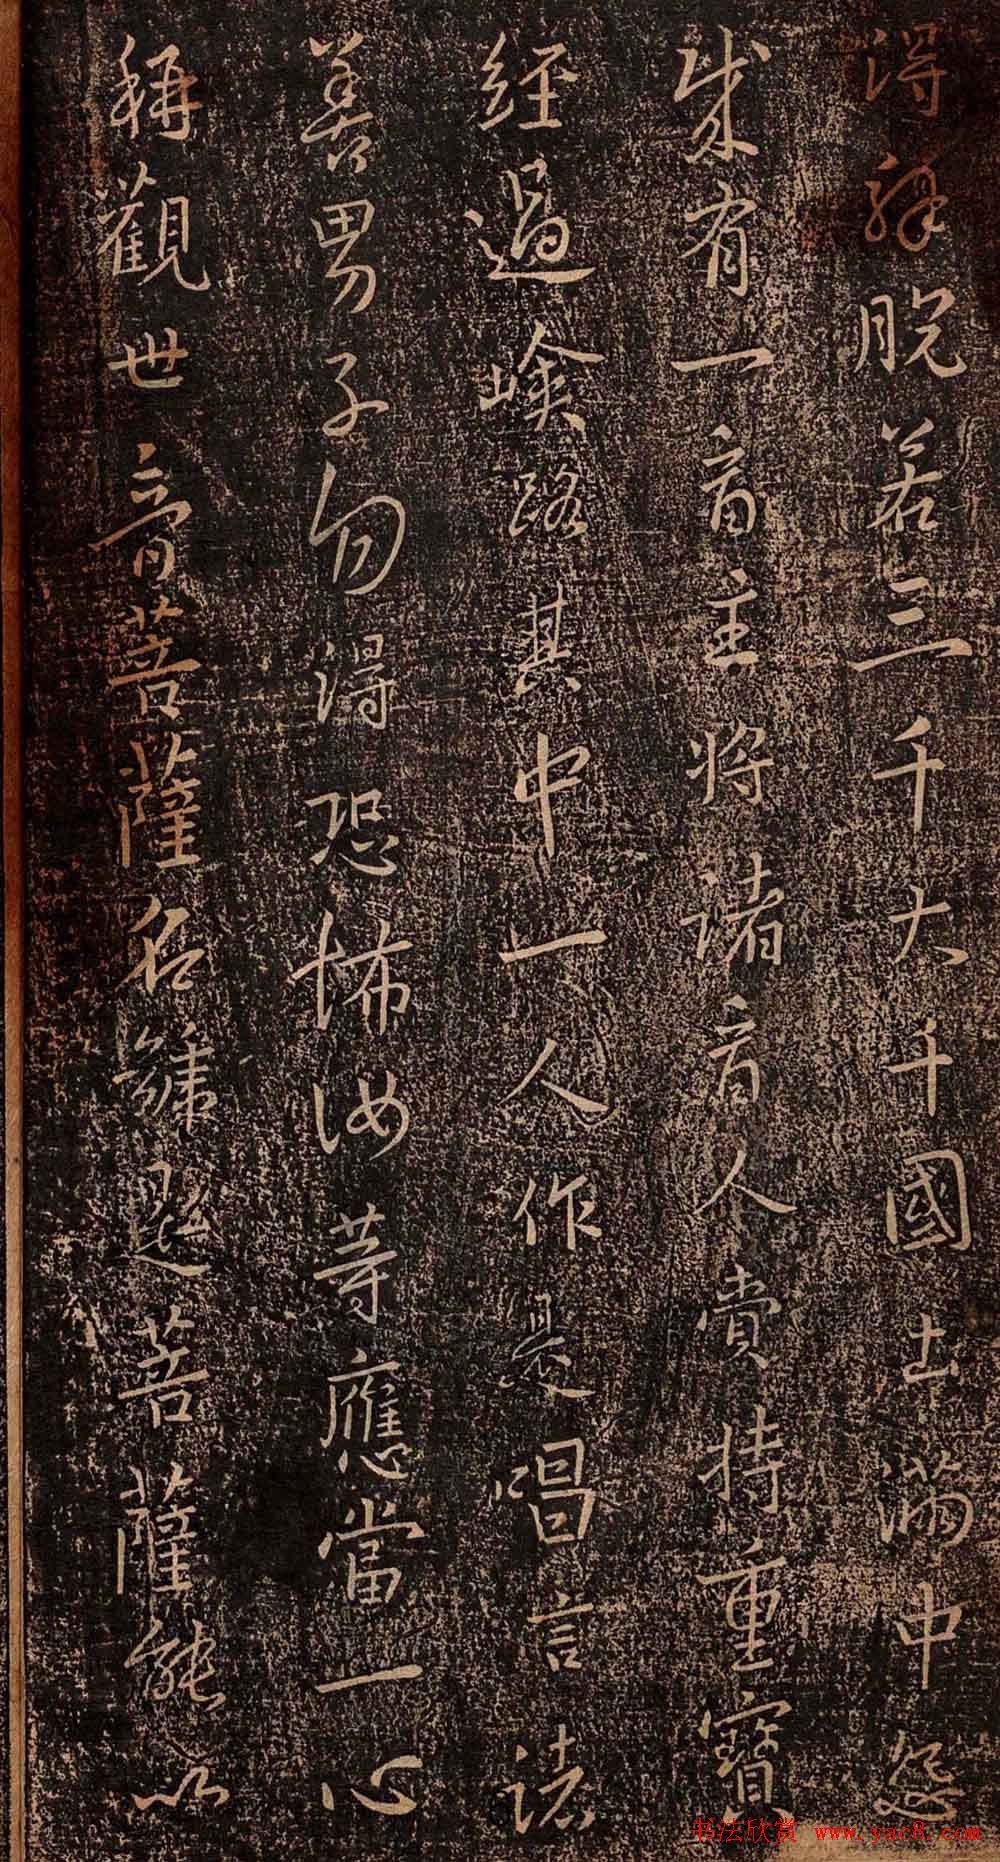 得解脫若三千大千國土滿中怨
賊有一商主將諸商人賫持重寶
經過嶮路其中一人作是唱言諸
善男子勿得恐怖汝等應當一心
稱觀世音菩薩名號是菩薩能以
书法欣赏 www.yac8.com